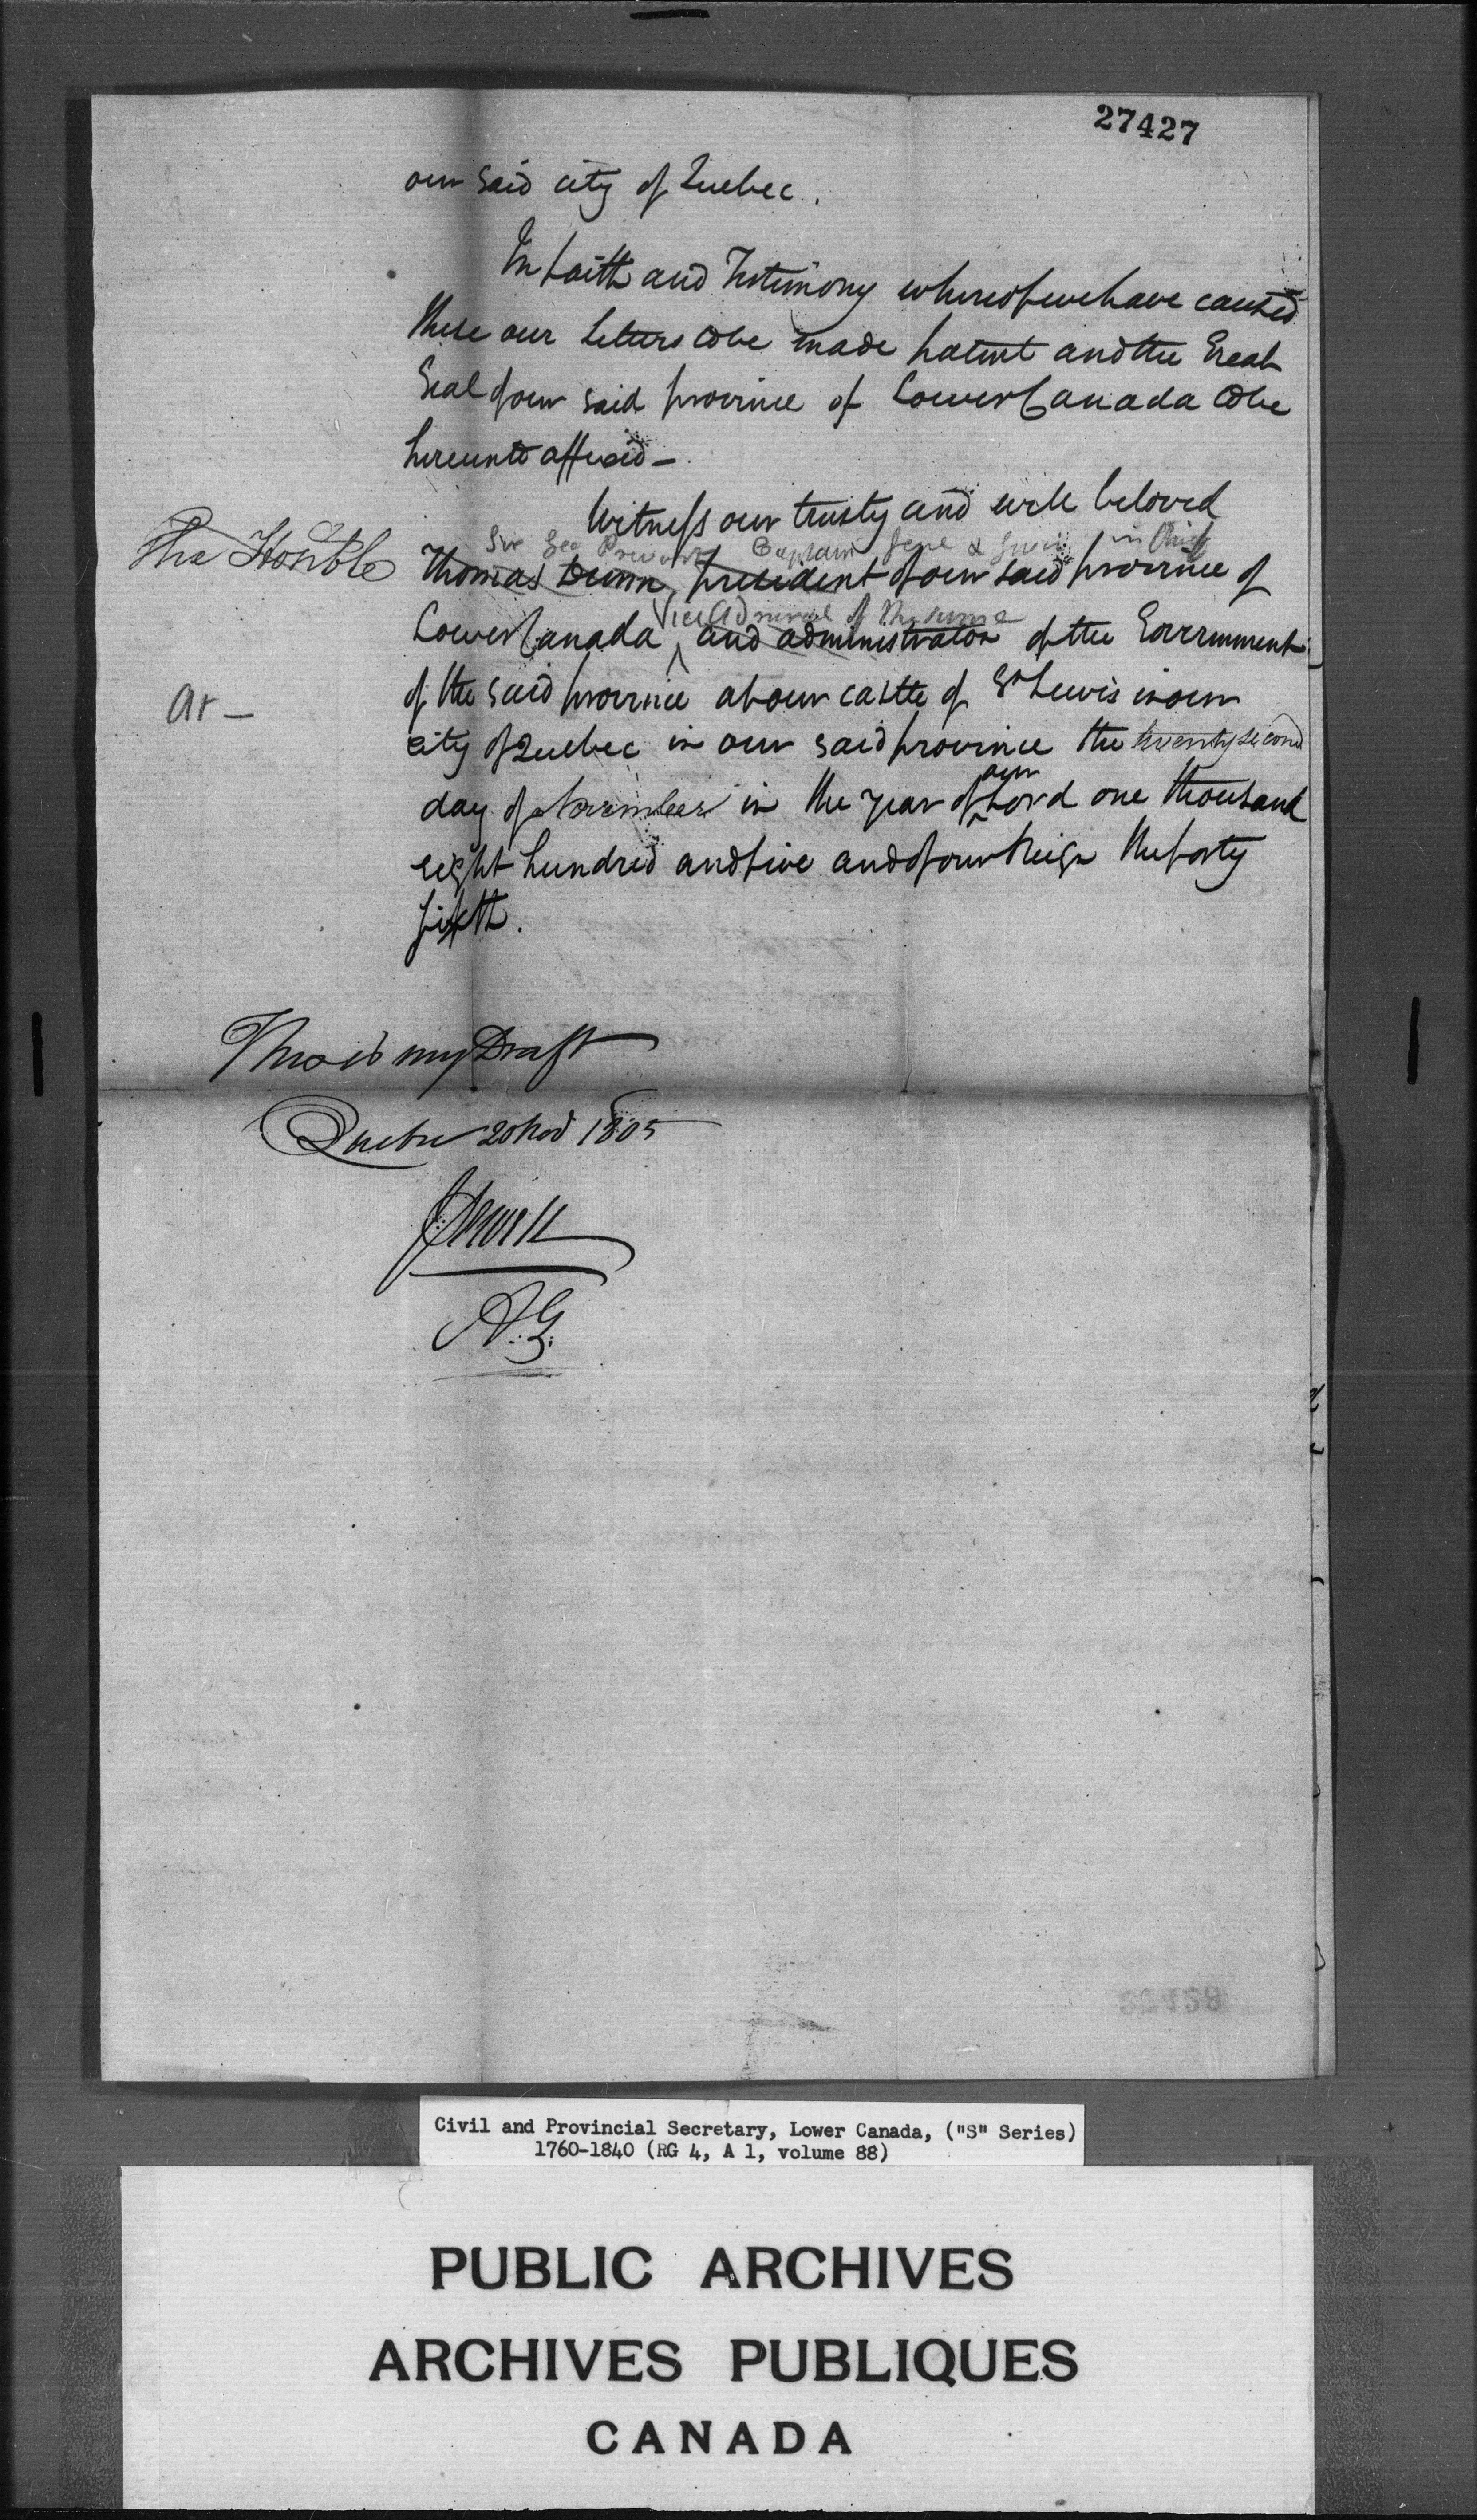 27427
our said city of Quebec.
In faith and Testimony whereof we have caused
these our Letters to be made patent and the Great
Seal of our said province of Lower Canada to be
hereunto affixed -
Witness our trusty and well beloved
Sir Geo Prevost Captain Genl & Govr in Chief
The Honble Thomas Dunn, president of our said province of
Vice Admiral of the same
Lower Canada and administrator of the Government
of the said province at our castle of St Lewis in our
at -
city of Quebec in our said province the twenty second
our
day of November in the year of Lord one thousand
eight hundred and five and of our Reign the forty
sixth.
This is my Draft
Quebec 20 Nov 1805
J. Sewell
A.G.
Civil and Provincial Secretary, Lower Canada, ("S" Series)
1760-1840 (RG 4, A 1, volume 88)
PUBLIC ARCHIVES
ARCHIVES PUBLIQUES
CANADA